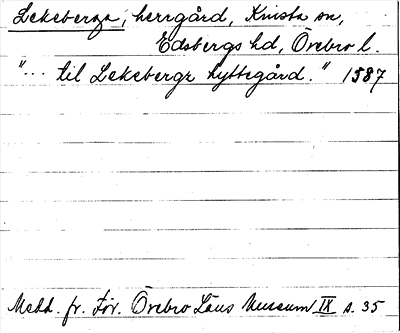 Lekeberga, herrgård, Knista sn,
Edsbergs hd, Örebro l.
"... til Lekebergz hyttegård." 1587
Medd. fr. För. Örebro Läns Museum IX s. 35